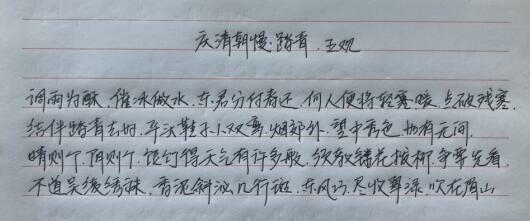 庆清朝慢·踏青 王观
调雨为酥，催冰做水，东君分付春还，何人便将轻寒暖，点破残寒，
结伴踏青去好，平头鞋子小双鸾，烟郊外，望中秀色，如有无间，
晴则个，阴则个，饾饤得天气有许多般，须教镂花拨柳，争要先看，
不道吴绫绣袜，香泥斜沁几行斑，东风巧，尽收翠绿，吹在眉山